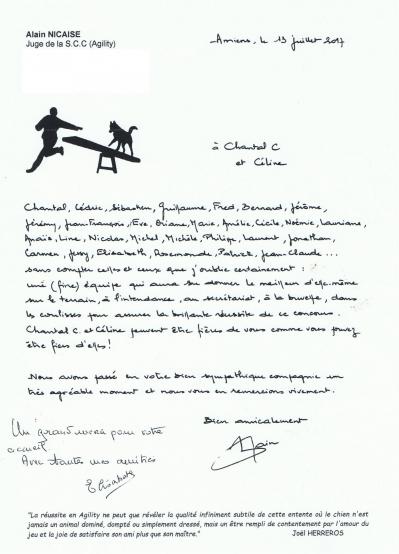 Alain NICAISE
Juge de la S.C.C (Agility)
Amiens, le 13 juillet 2017
à Chantal C
et Céline
Chantal, Cédric, Sébastien, Guillaume, Fred, Bernard, Jérôme,
Jérémy, Jean-François, Eve, Oriane, Marie, Amélie, Cécile, Noémie, Lauriane,
Anaïs, Line, Nicolas, Michel, Michèle, Philippe, Laurent, Jonathan,
Carmen, Jessy, Elisabeth, Rosemonde, Patrick, Jean-Claude ...
sans compter celles et ceux que j'oublie certainement :
une (fine) équipe qui aura su donner le meilleur d'elle-même
sur le terrain, à l'intendance, au secrétariat, à la buvette, dans
les coulisses pour assurer la brillante réussite de ce concours.
Chantal C. et Céline peuvent être fières de vous comme vous pouvez
être fiers d'elles !
Nous avons passé en votre bien sympathique compagnie un
très agréable moment et nous vous en remercions vivement.
Bien amicalement
Alain
Un grand merci pour votre
accueil.
Avec toutes mes amitiés
Elisabeth
"La réussite en Agility ne peut que révéler la qualité infiniment subtile de cette entente où le chien n'est
jamais un animal dominé, dompté ou simplement dressé, mais un être rempli de contentement par l'amour du
jeu et la joie de satisfaire son ami plus que son maître." Joël HERREROS